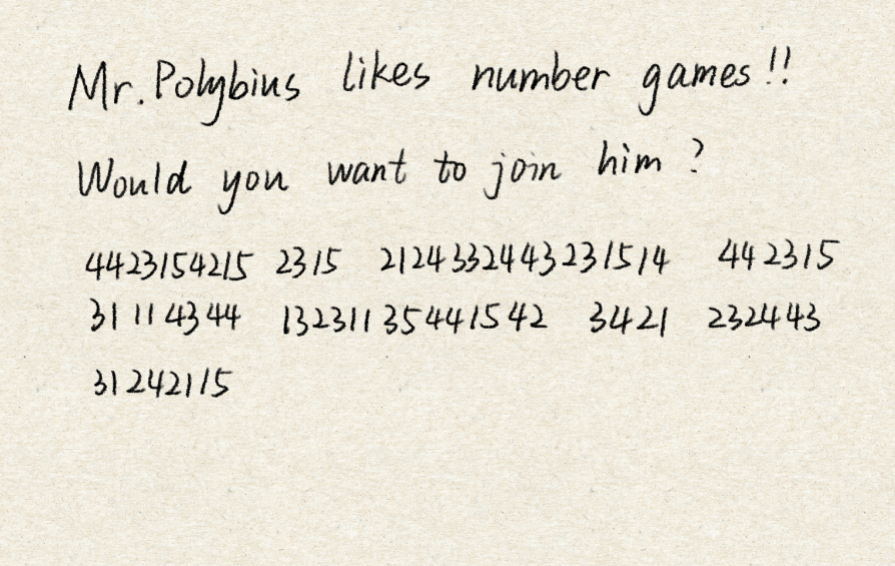 Mr. Polybius likes number games!!
Would you want to join him?
4423154215 2315 2124332443231514 442315
31114344 13231135441542 3421 232443
31242115